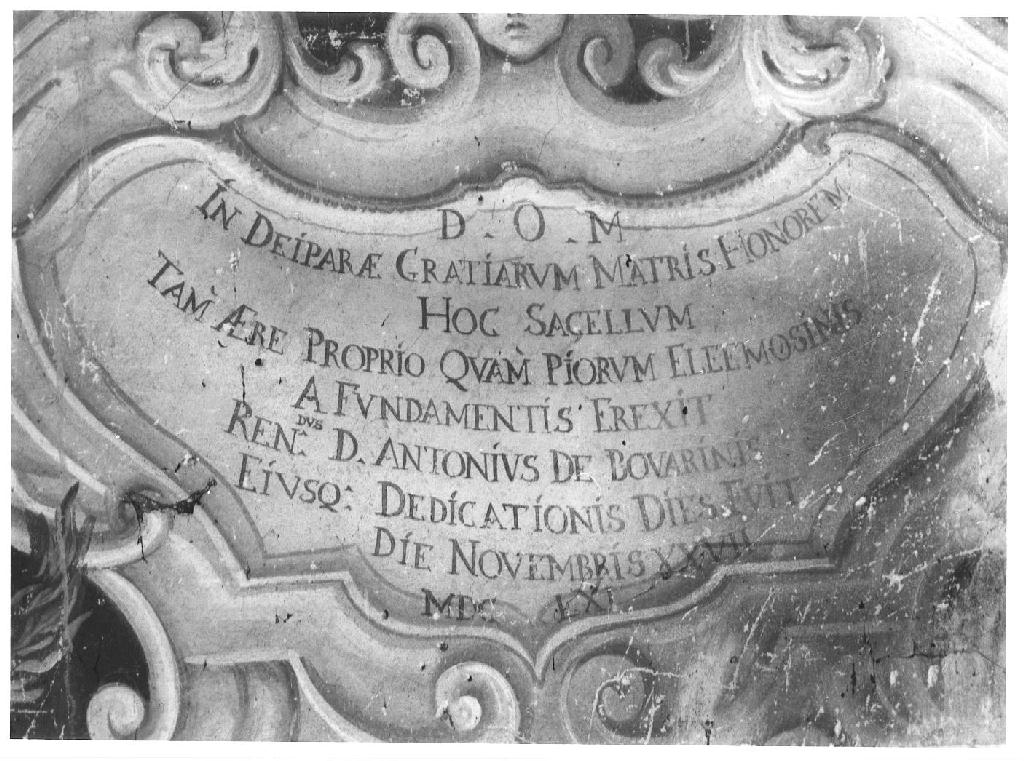 D. O. M
IN DEIPARÆ GRATIARVM MATRIS HONOREM
HOC SACELLVM
TAM ÆRE PROPRIO QVAM PIORVM ELEEMOSINIS
A FVNDAMENTIS EREXIT
REN:DVS D. ANTONIVS DE BOVARINIS
EIVSQ: DEDICATIONIS DIES FVIT
DIE NOVEMBRIS XXVII